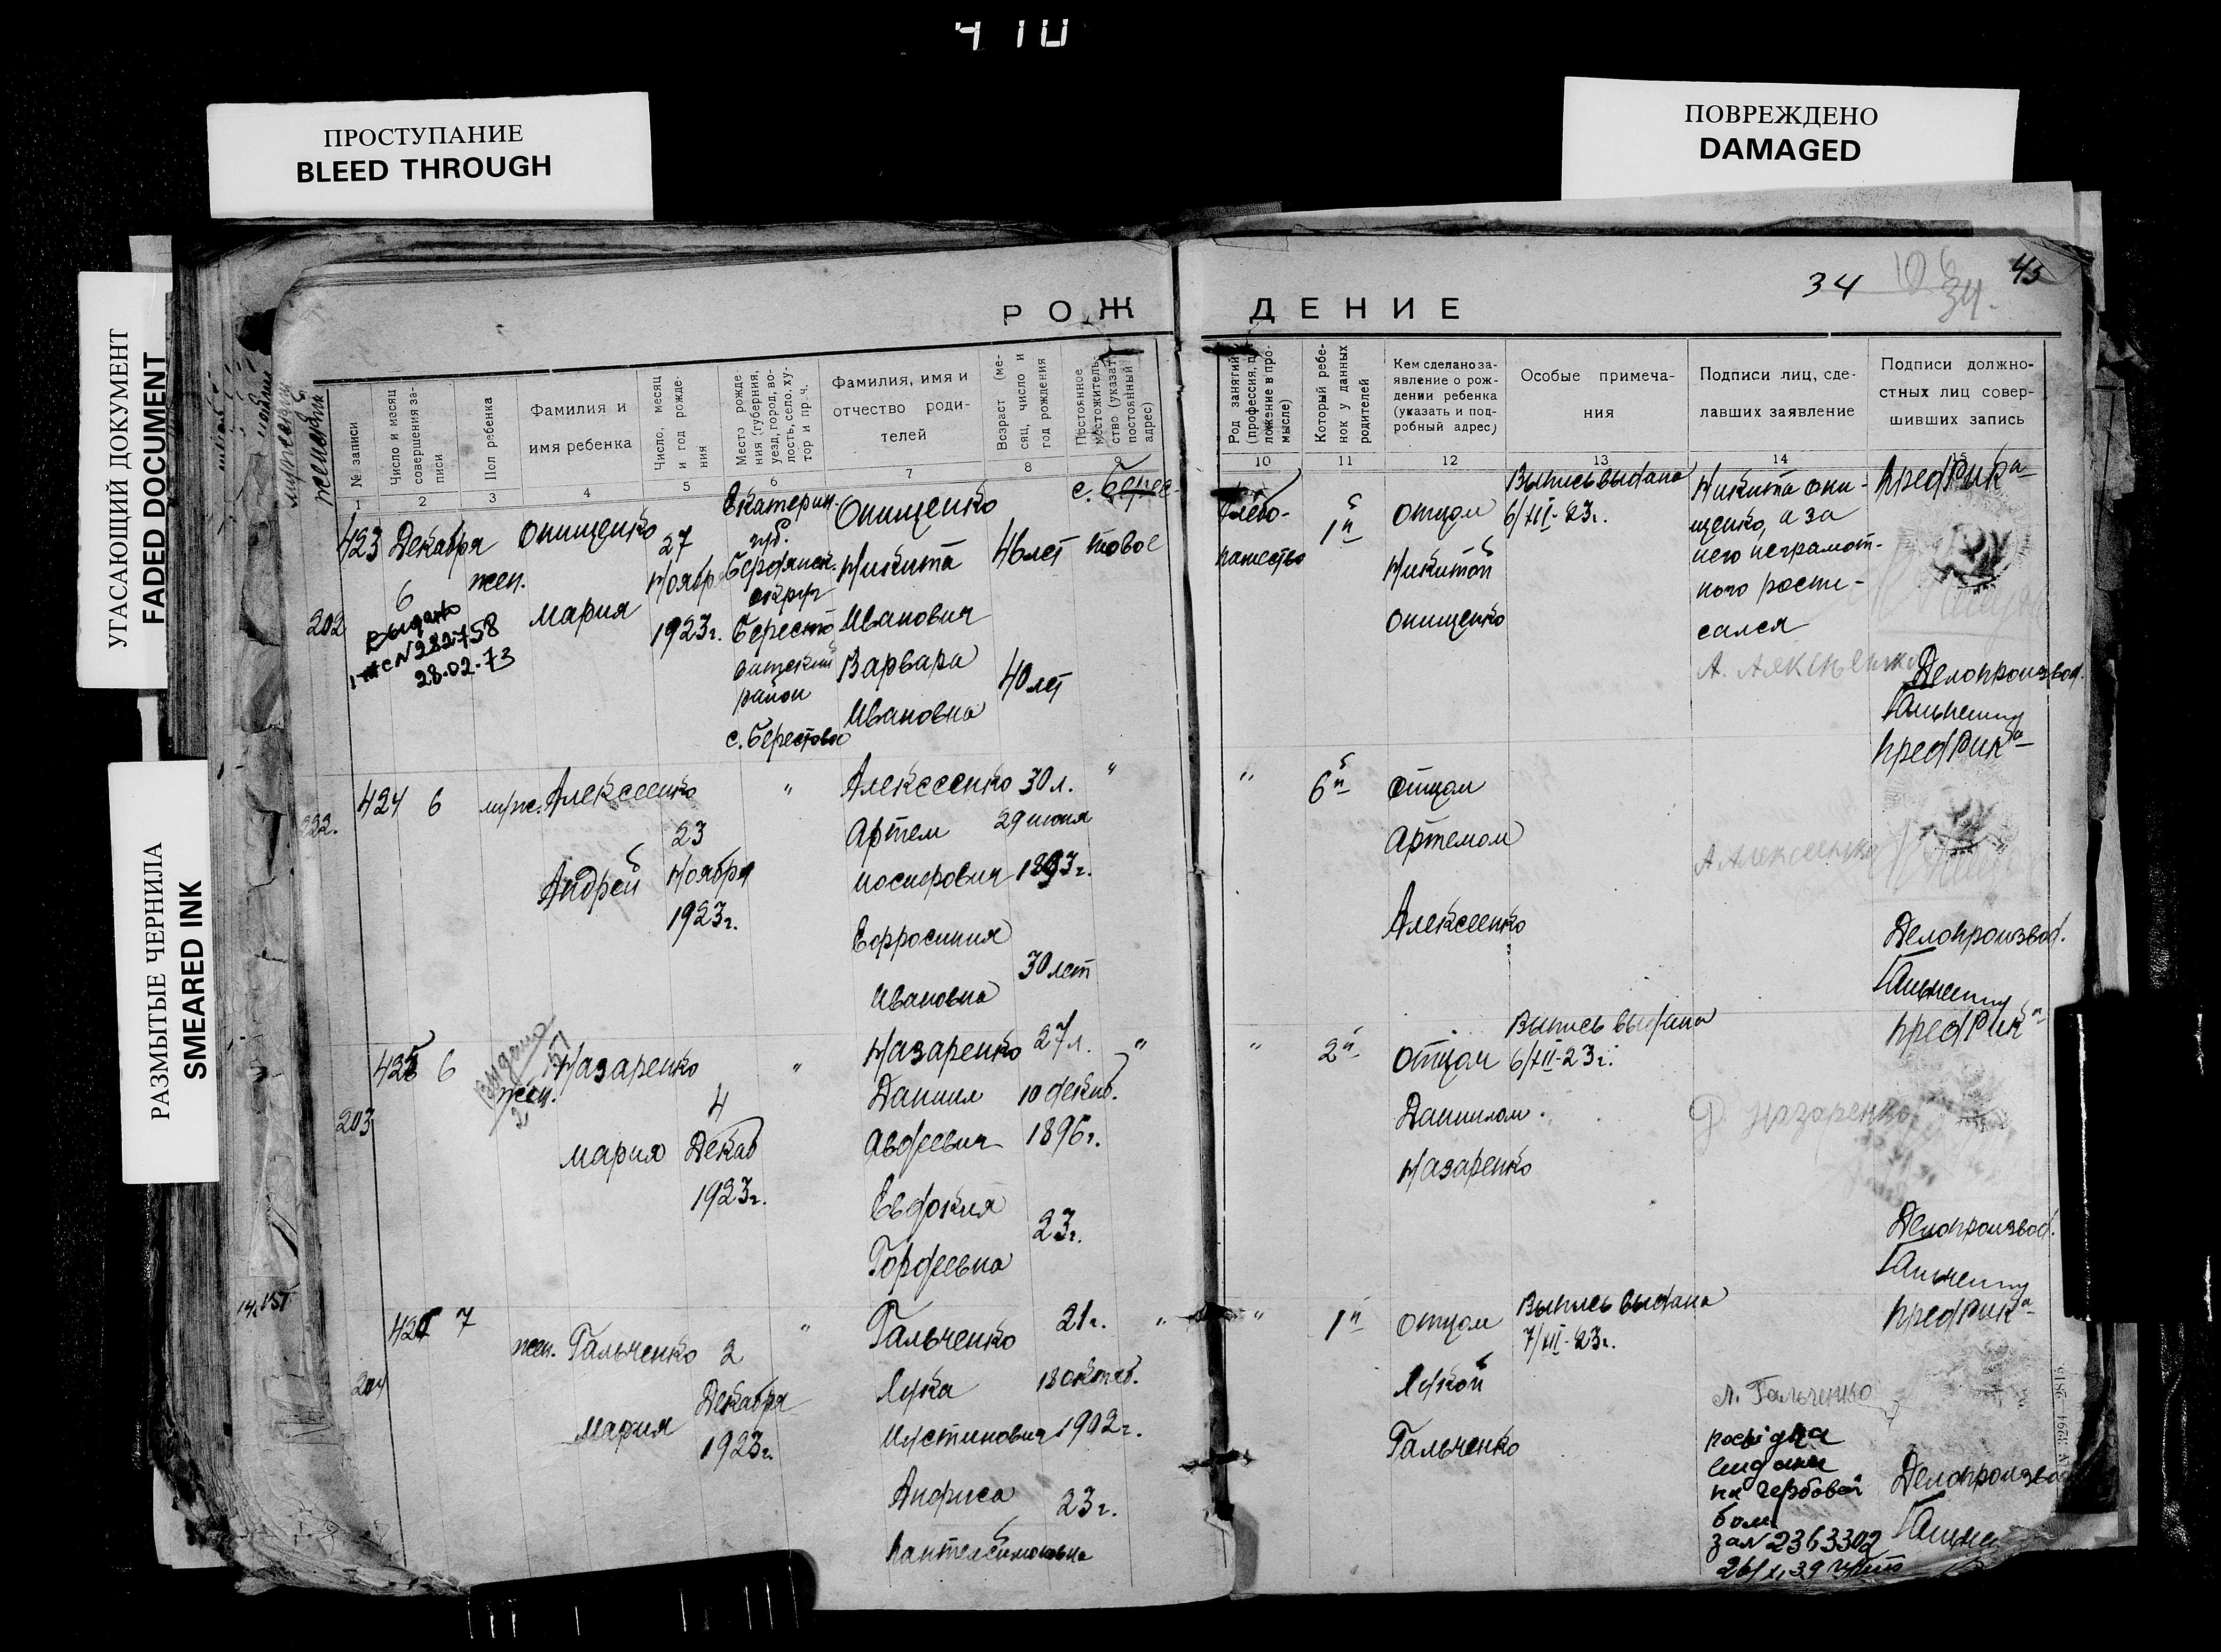 410
ПРОСТУПАНИЕ
BLEED THROUGH
ПОВРЕЖДЕНО
DAMAGED
УГАСАЮЩИЙ ДОКУМЕНТ
FADED DOCUMENT
РАЗМЫТЫЕ ЧЕРНИЛА
SMEARED INK
34
106
34.
45
РОЖДЕНИЕ
мужеский
женский
№ записи
Число и месяц совершения записи
Пол ребенка
Фамилия и
имя ребенка
Число, месяц и год рождения
Место рождения (губерния, уезд, город, волость, село, хутор и пр. ч.
Фамилия, имя и
отчество роди-
телей
Возраст (месяц, число и год рождения
Постоянное местожительство (указать постоянный адрес)
Род занятий (профессия, положение в промысле)
Который ребенок у данных родителей
Кем сделано за-
явление о рож-
дении ребенка
(указать и под-
робный адрес)
Особые примеча-
ния
Подписи лиц, сде-
лавших заявление
Подписи должно-
стных лиц совер-
шивших запись
1 2 3 4 5 6 7 8 9 10 11 12 13 14 15
423
202
Декабря
6
Выдано
28.02.73
жен.
Онищенко
Мария
27
Ноября
1923г.
Екатерин.
губ.
Бердянск.
округ
Бересто
ветский
район
с. Берестовое
Онищенко
Никита
Иванович
Варвара
Ивановна
46 лет
40 лет
с. Берес-
товое
Хлебо-
пашество
1й
Отцом
Никитой
Онищенко
Выпись выдана
6/XII-23г.
Никита Они-
щенко, а за
него неграмот-
ного распи-
сался
А. Алексеенко
ПредРика
Делопроизвод.
424
222.
6
муж.
Алексеенко
Андрей
23
Ноября
1923г.
"
Алексеенко
Артем
Иосифович
Ефросиния
Ивановна
30 л.
29 июня
1893г.
30 лет
"
"
6й
Отцом
Артемом
Алексеенко
А Алексеенко
ПредРика
Делопроизвод.
425
203
6
Выдано
жен.
Назаренко
Мария
4
Декаб
1923г.
"
Назаренко
Даниил
Авдеевич
Евдокия
Гордеевна
27 л.
10 декаб.
1896г.
23г.
"
"
2й
Отцом
Даниилом
Назаренко
Выпись выдана
6/XII-23г.
Д. Назаренко
ПредРика
Делопроизвод.
426
204
7
жен.
Гальченко
Мария
2
Декабря
1923г.
"
Гальченко
Лука
Иустинович
Анфиса
Пантелеймоновна
21г.
18 октяб.
1902г.
23г.
"
"
1й
Отцом
Лукой
Гальченко
Выпись выдана
7/XII-23г.
Л. Гальченко
на гербовой
за № 2363302
ПредРика
Делопроизвод